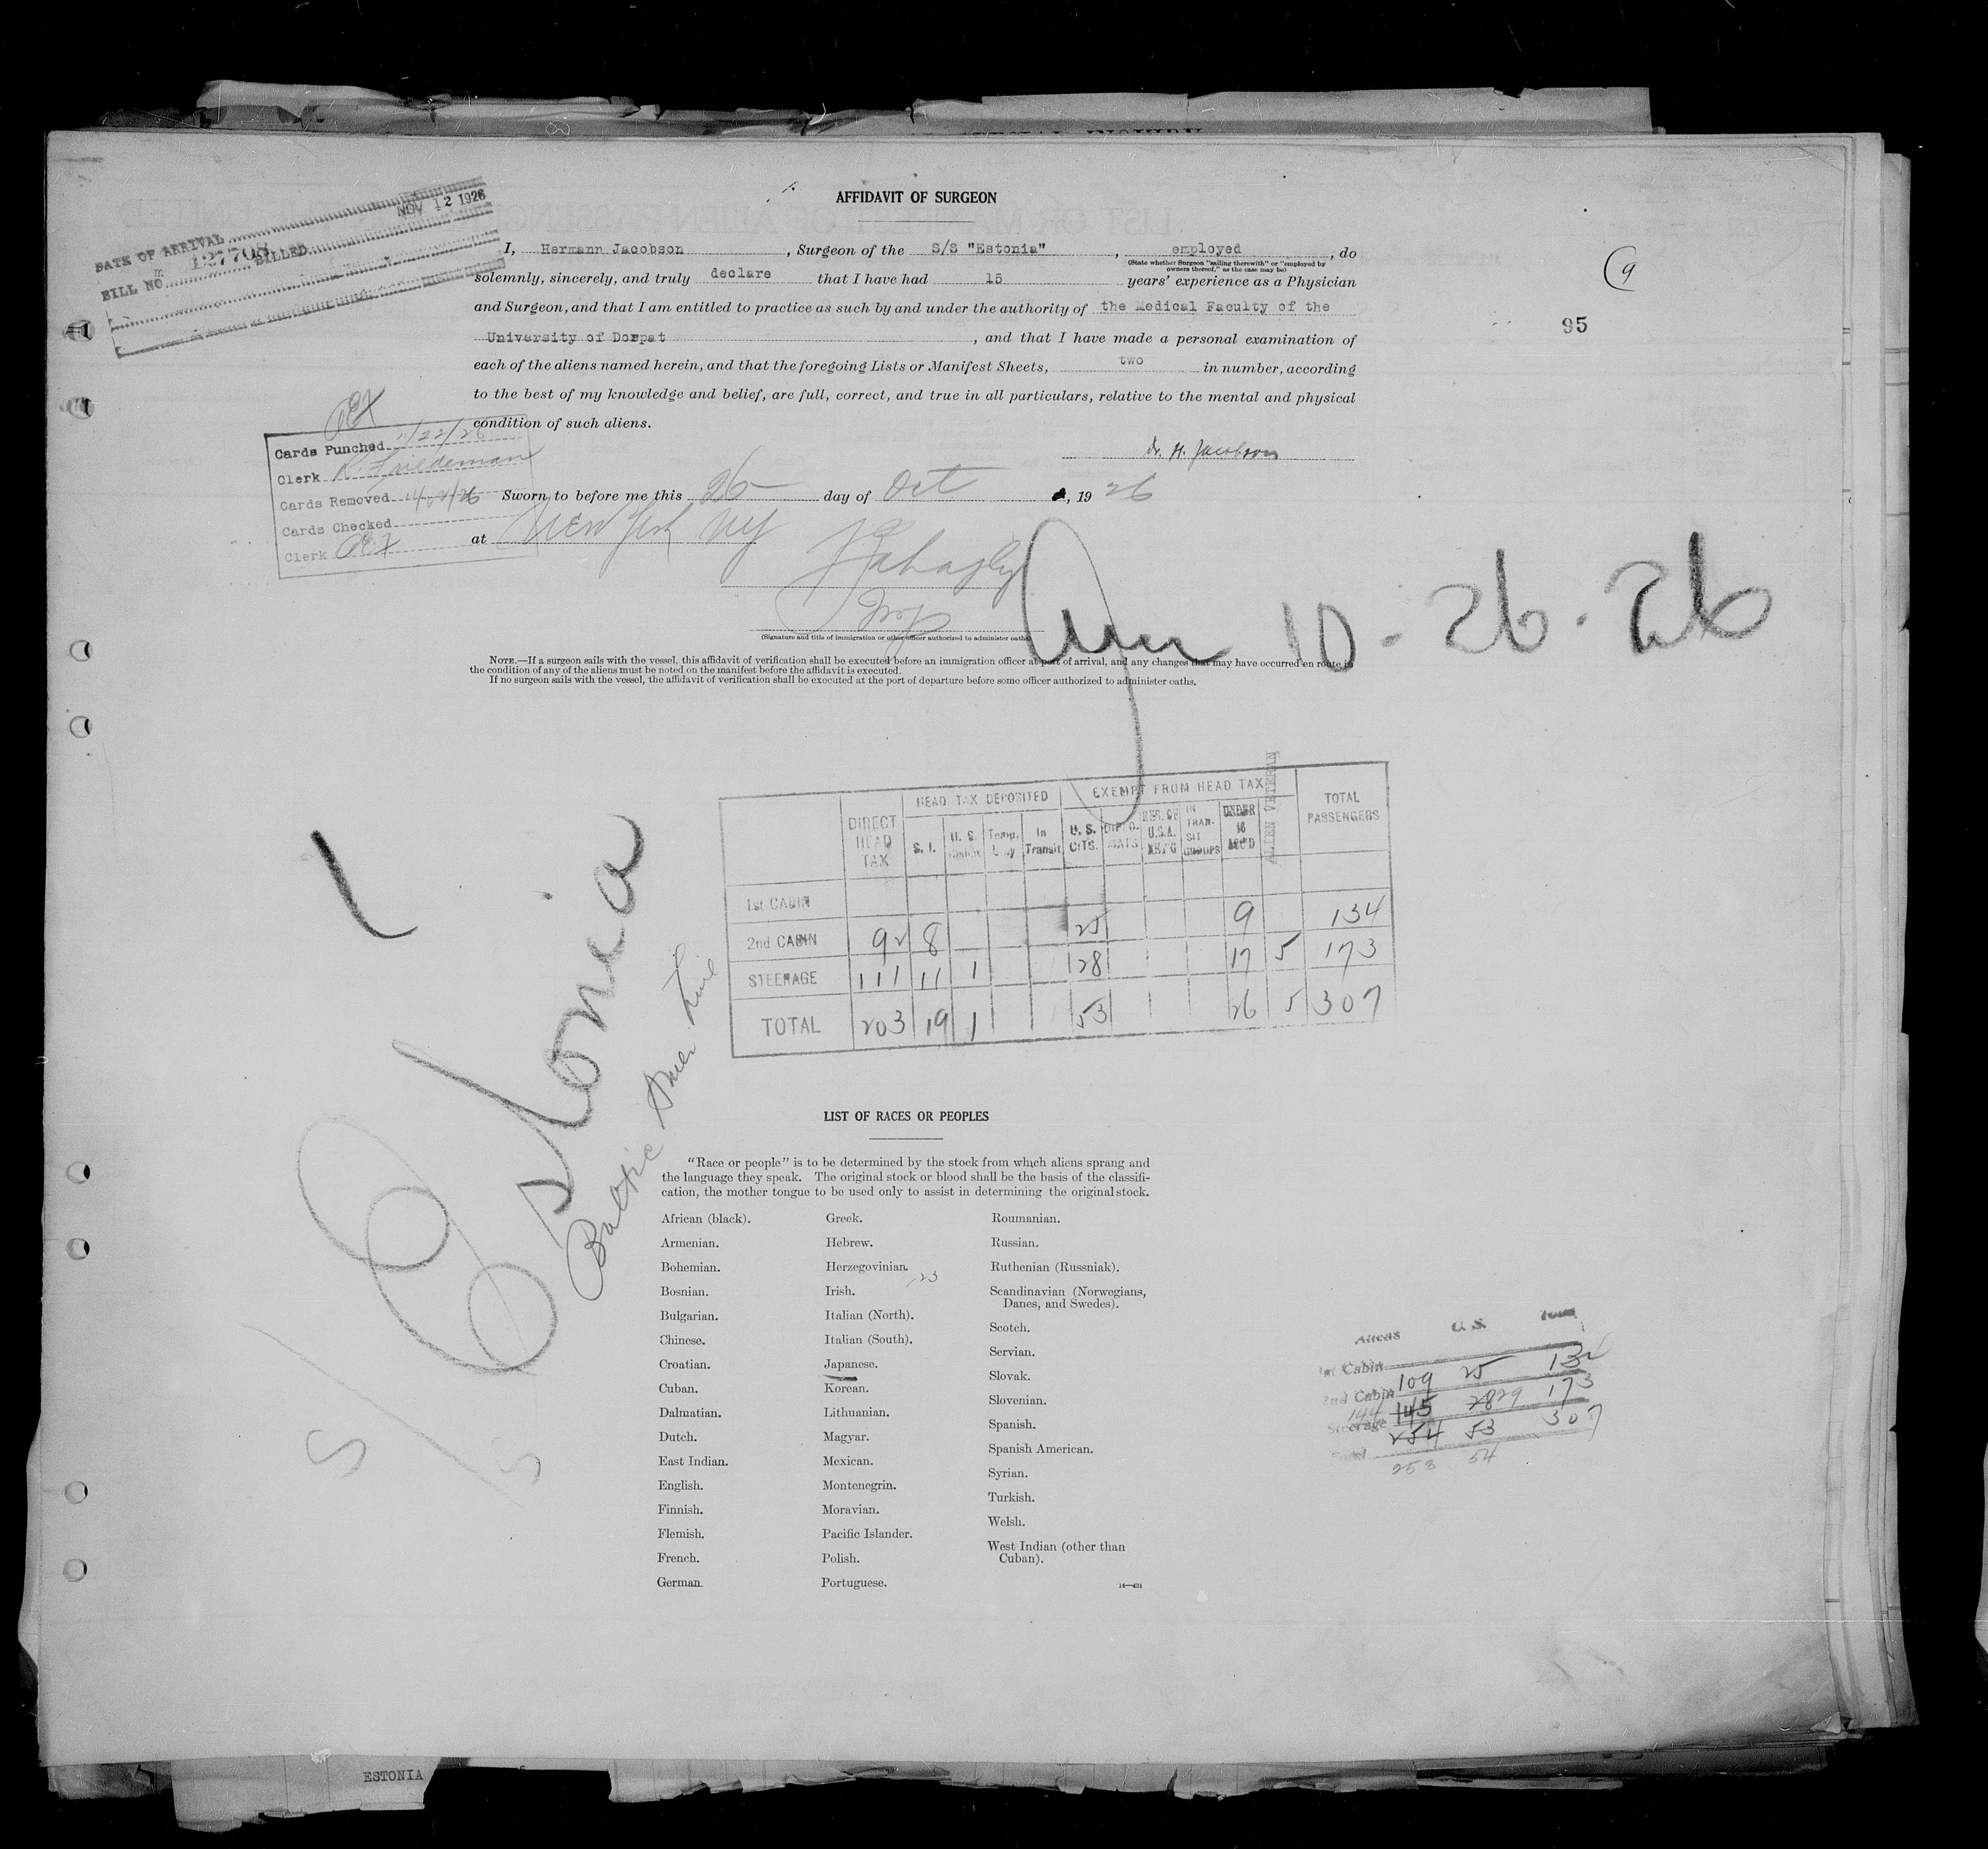 AFFIDAVIT OF SURGEON
NOV 12 1926
DATE OF ARRIVAL
BILL NO. m 127708 BILLED
I, Hermann Jacobson, Surgeon of the S/S "Estonia", employed, do
(State whether Surgeon "sailing therewith" or "employed by
owners thereof," as the case may be)
solemnly, sincerely, and truly declare that I have had 15 years' experience as a Physician
and Surgeon, and that I am entitled to practice as such by and under the authority of the Medical Faculty of the
University of Dorpat, and that I have made a personal examination of
each of the aliens named herein, and that the foregoing Lists or Manifest Sheets, two in number, according
to the best of my knowledge and belief, are full, correct, and true in all particulars, relative to the mental and physical
condition of such aliens.
9
95
Dr. H. Jacobson
Cards Punched 11/22/26
Clerk K. Friedeman
Cards Removed
Cards Checked
Clerk
Sworn to before me this 26 day of Oct, 1926
at New York NY
(Signature and title of immigration or other officer authorized to administer oaths)
10-26-26
NOTE.—If a surgeon sails with the vessel, this affidavit of verification shall be executed before an immigration officer at port of arrival, and any changes that may have occurred en route in
the condition of any of the aliens must be noted on the manifest before the affidavit is executed.
If no surgeon sails with the vessel, the affidavit of verification shall be executed at the port of departure before some officer authorized to administer oaths.
HEAD TAX DEPOSITED EXEMPT FROM HEAD TAX
DIRECT HEAD TAX S. I. U. S. Temp. In Transit U. S. CITS. DIPLOMATS RES. OF U.S.A. IN TRANSIT GROUPS UNDER 16 ACC'D ALIEN VETERAN TOTAL PASSENGERS
1st CABIN
2nd CABIN 92 8 25 9 134
STEERAGE 111 11 1 28 17 5 173
TOTAL 203 19 1 53 26 5 307
Estonia
Baltic Amer Line
S/S
LIST OF RACES OR PEOPLES
"Race or people" is to be determined by the stock from which aliens sprang and
the language they speak. The original stock or blood shall be the basis of the classifi-
cation, the mother tongue to be used only to assist in determining the original stock.
African (black).
Armenian.
Bohemian.
Bosnian.
Bulgarian.
Chinese.
Croatian.
Cuban.
Dalmatian.
Dutch.
East Indian.
English.
Finnish.
Flemish.
French.
German.
Greek.
Hebrew.
Herzegovinian.
23
Irish.
Italian (North).
Italian (South).
Japanese.
Korean.
Lithuanian.
Magyar.
Mexican.
Montenegrin.
Moravian.
Pacific Islander.
Polish.
Portuguese.
Roumanian.
Russian.
Ruthenian (Russniak).
Scandinavian (Norwegians,
Danes, and Swedes).
Scotch.
Servian.
Slovak.
Slovenian.
Spanish.
Spanish American.
Syrian.
Turkish.
Welsh.
West Indian (other than
Cuban).
14—431
Aliens U. S. Total
1st Cabin
2nd Cabin 109 25 134
Steerage 144 145 28 29 173
Total 254 53 307
253 54
ESTONIA